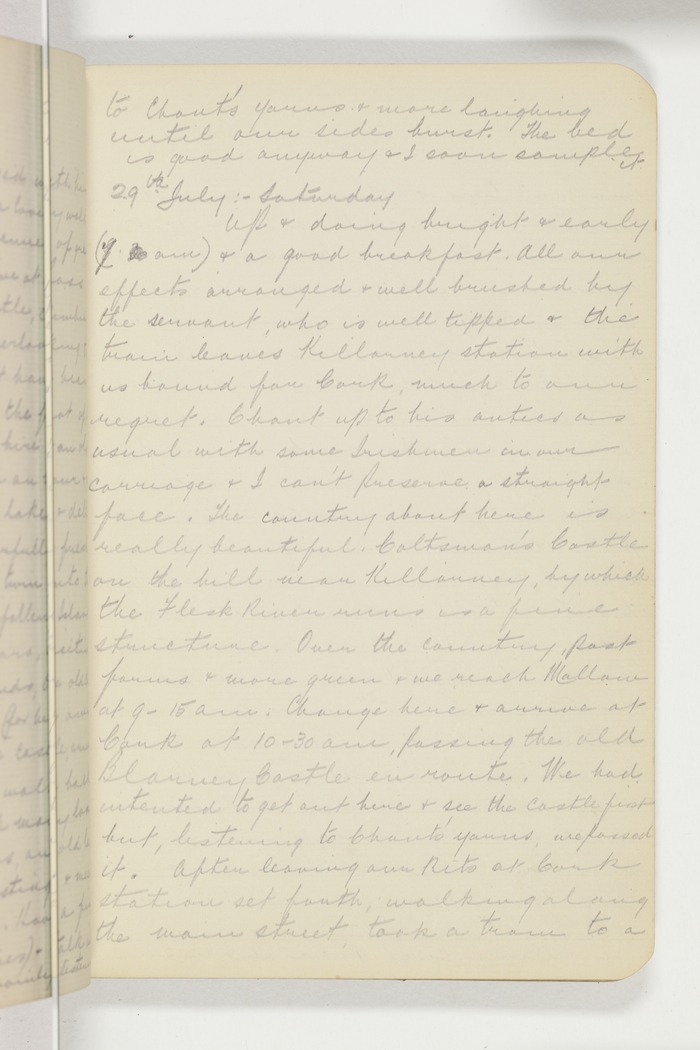 to Chant's yarns & more laughing
until our sides burst. The bed
is good anyway & I soon sample it
29th July :- Saturday
Up & doing bright & early
(7 am) & a good breakfast. All our
effects arranged & well brushed by
the servant, who is well tipped & the
train leaves Killarney station with
us bound for Cork, much to our
regret. Chant up to his antics as
usual with some Irishmen in our
carriage & I can't preserve a straight
face. The country about here is
really beautiful. Coltsman's Castle
on the hill near Killarney, by which
the Flesk River runs is a fine
structure. Over the country, past
farms & more green & we reach Mallow
at 9-15 am. Change here & arrive at
Cork at 10-30 am, passing the old
Blarney Castle en route. We had
intented to get out here & see the castle first
but, listening to Chant's yarns, we passed
it. After leaving our kits at Cork
station set forth, walking along
the main street, took a tram to a